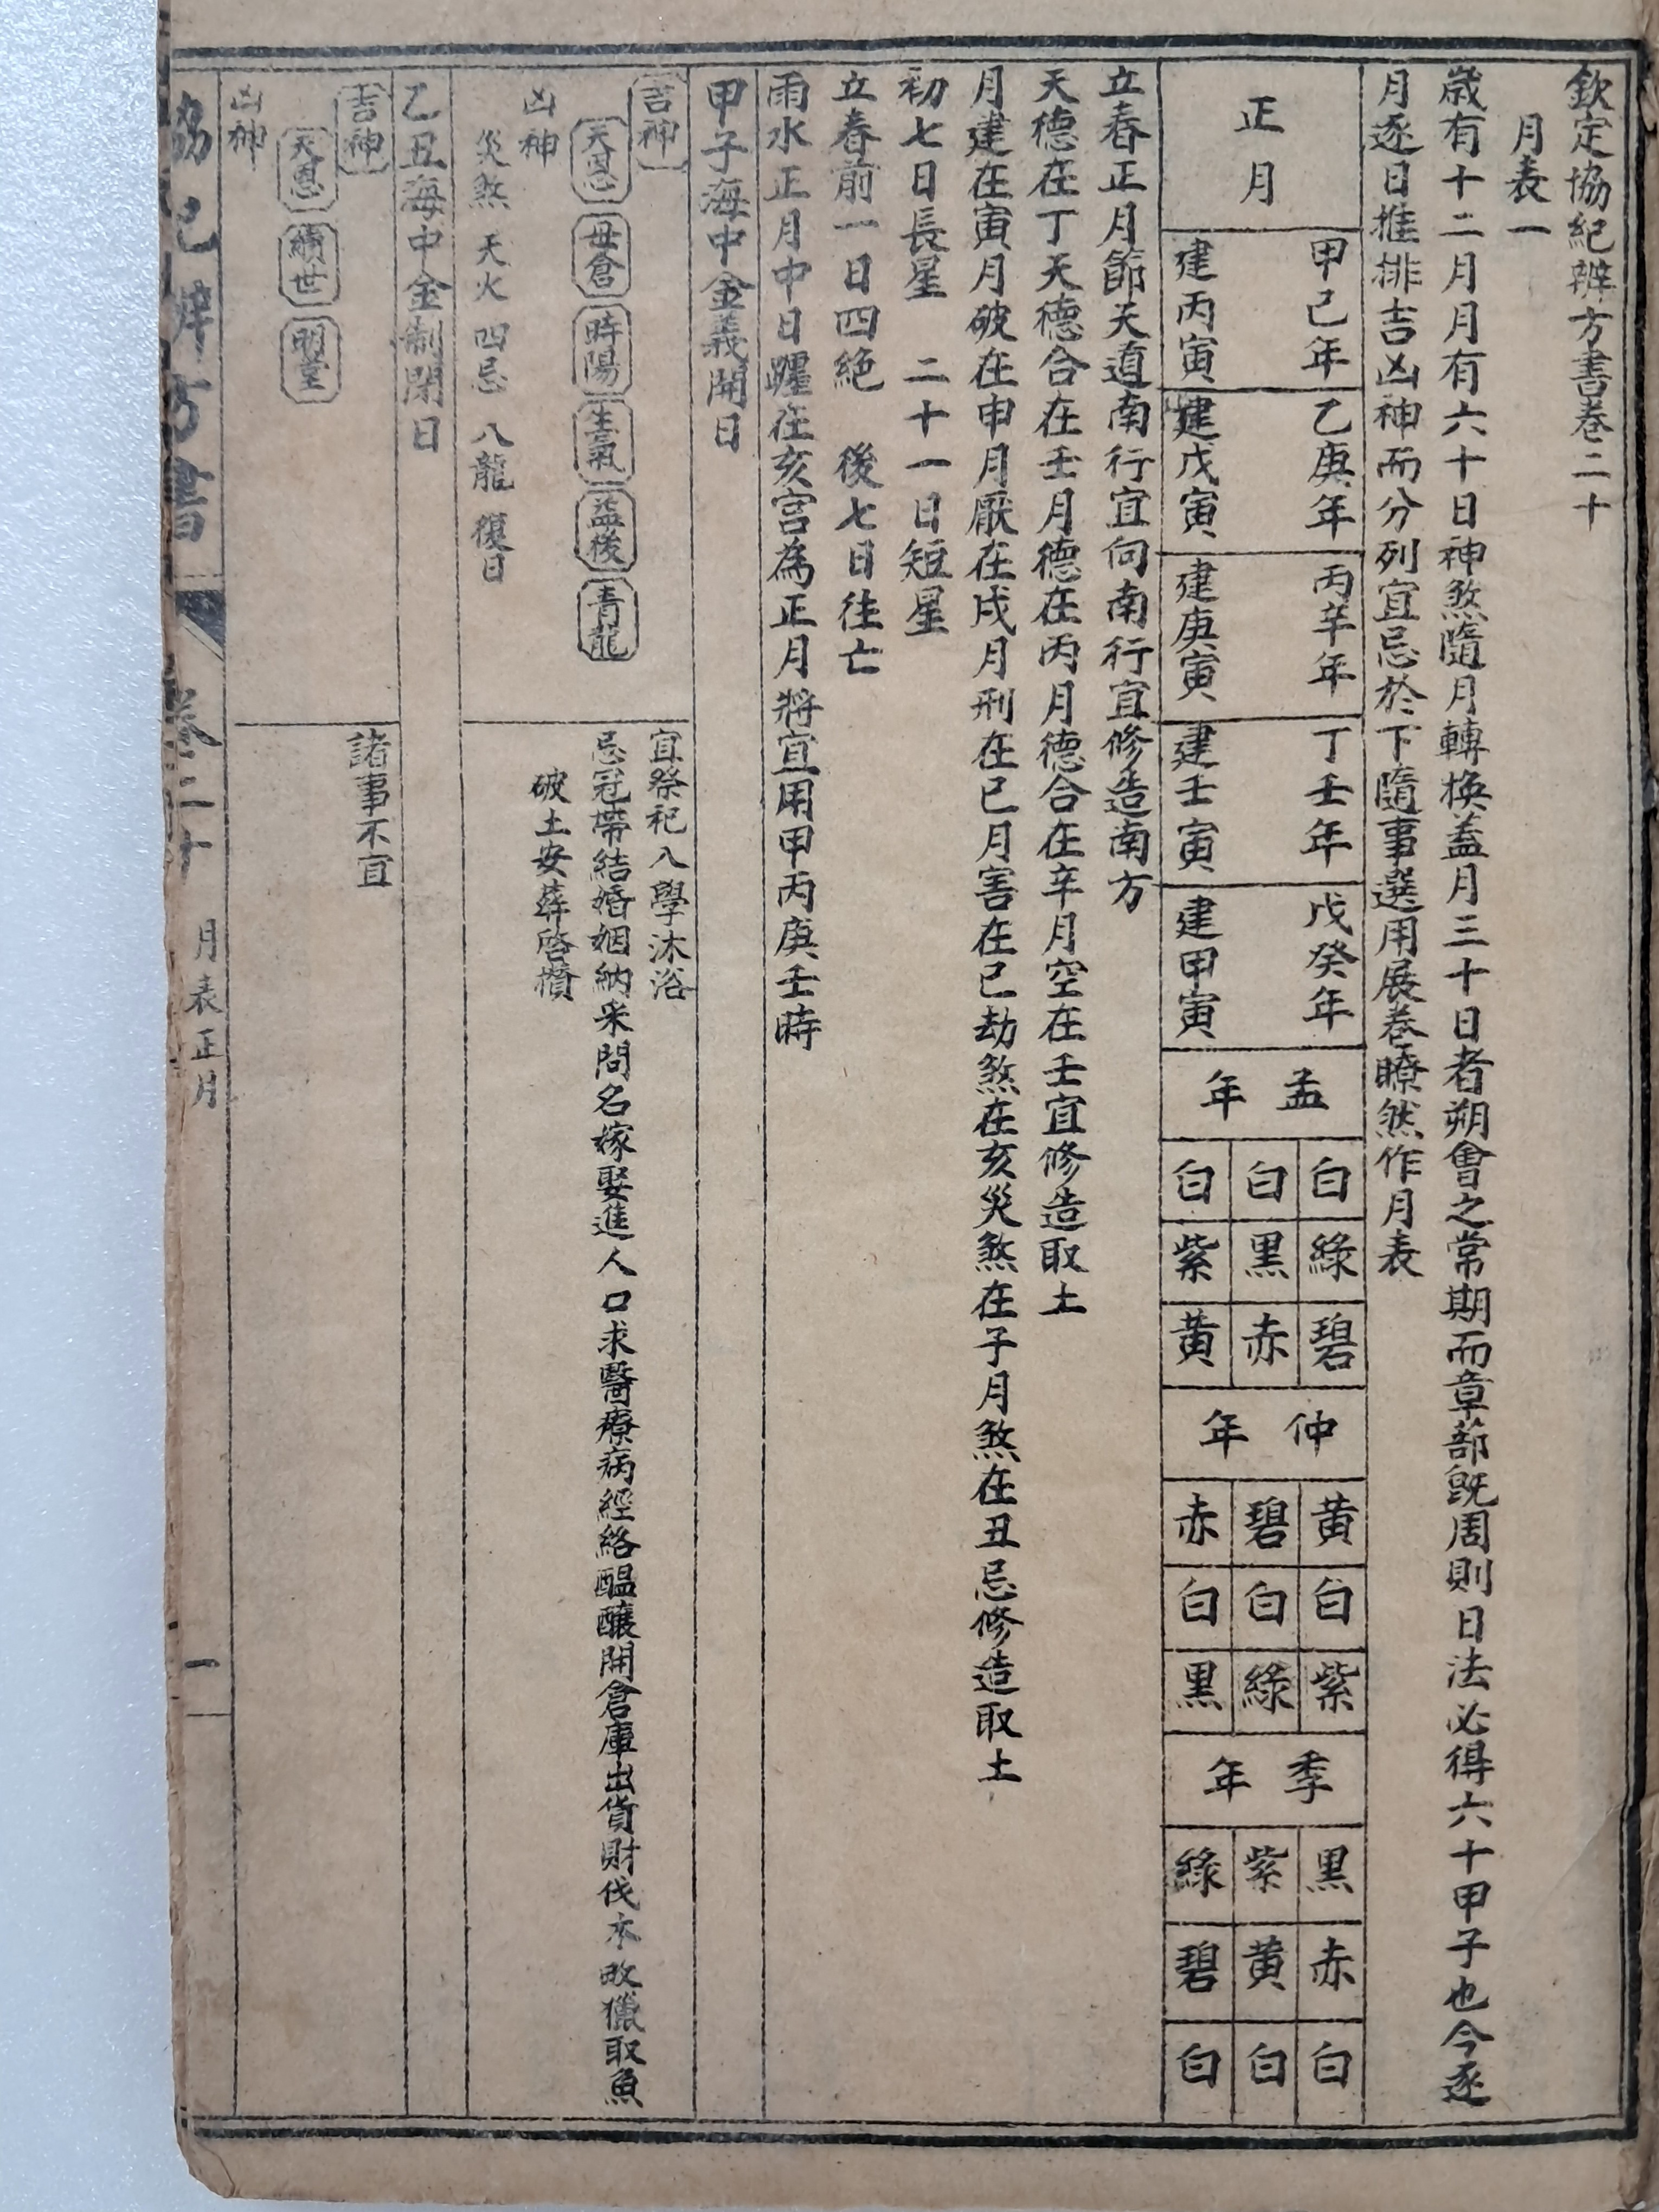 欽定協紀辨方書卷二十
月表一
歲有十二月月有六十日神煞隨月轉換蓋月三十日者朔會之常期而章蔀既周則日法必得六十甲子也今逐
月逐日推排吉凶神而分列宜忌於下隨事選用展卷瞭然作月表
正月
甲己年
建丙寅
乙庚年
建戊寅
丙辛年
建庚寅
丁壬年
建壬寅
戊癸年
建甲寅
孟年
白綠碧
白黑赤
白紫黃
仲年
黃白紫
碧白綠
赤白黑
季年
黑赤白
紫黃白
綠碧白
立春正月節天道南行宜向南行宜修造南方
天德在丁天德合在壬月德在丙月德合在辛月空在壬宜修造取土
月建在寅月破在申月厭在戌月刑在巳月害在巳劫煞在亥災煞在子月煞在丑忌修造取土
初七日長星 二十一日短星
立春前一日四絕 後七日往亡
雨水正月中日躔在亥宮為正月將宜用甲丙庚壬時
甲子海中金義開日
吉神
天恩 母倉 時陽 生氣 益後 青龍
凶神
災煞 天火 四忌 八龍 復日
宜祭祀入學沐浴
忌冠帶結婚姻納采問名嫁娶進人口求醫療病經絡醞釀開倉庫出貨財伐木畋獵取魚
破土安葬啓攢
乙丑海中金制閉日
吉神
天恩 續世 明堂
凶神
諸事不宜
協紀辨方書 卷二十 月表正月 一